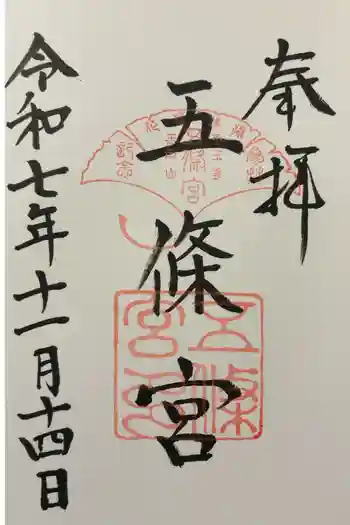 奉拝
五條宮
令和七年十一月十四日
五條宮